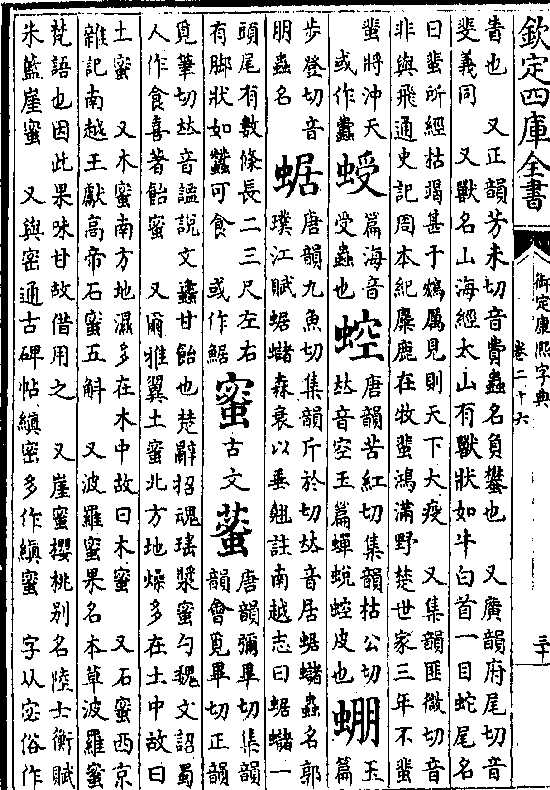 欽定四庫全書
御定康熙字典
卷二十六
三十
也 又正韻芳未切音費蟲名負蠜也 又廣韻府尾切音
斐義同 又獸名山海經太山有獸狀如牛白首一目蛇尾名
曰蜚所經枯竭甚于鴆厲見則天下大疫 又集韻匪微切音
非與飛通史記周本紀麋鹿在牧蜚鴻滿野楚世家三年不蜚
蜚將沖天
或作
篇海音
受蟲也
𧌆
唐韻苦紅切集韻枯公切
𠀤音空玉篇蟬蛻𧌆皮也
玉
篇
步登切音
朋蟲名
蜛
唐韻九魚切集韻斤於切𠀤音居蜛蠩蟲名郭
璞江賦蜛蠩森衰以垂翹註南越志曰蜛蠩一
頭尾有數條長二三尺左右
有脚狀如蠶可食 或作鋸
蜜
古文
䖸
唐韻彌畢切集韻
韻會覓畢切正韻
覓筆切𠀤音謐說文䘉甘飴也楚辭招魂瑤漿蜜勺魏文詔蜀
人作食喜著飴蜜 又爾雅翼土蜜北方地燥多在土中故曰
土蜜 又木蜜南方地濕多在木中故曰木蜜 又石蜜西京
雜記南越王獻高帝石蜜五斛 又波羅蜜果名本草波羅蜜
梵語也因此果味甘故借用之 又崖蜜櫻桃别名陸士衡賦
朱籃崖蜜 又與密通古碑帖縝密多作縝蜜 字从宓俗作